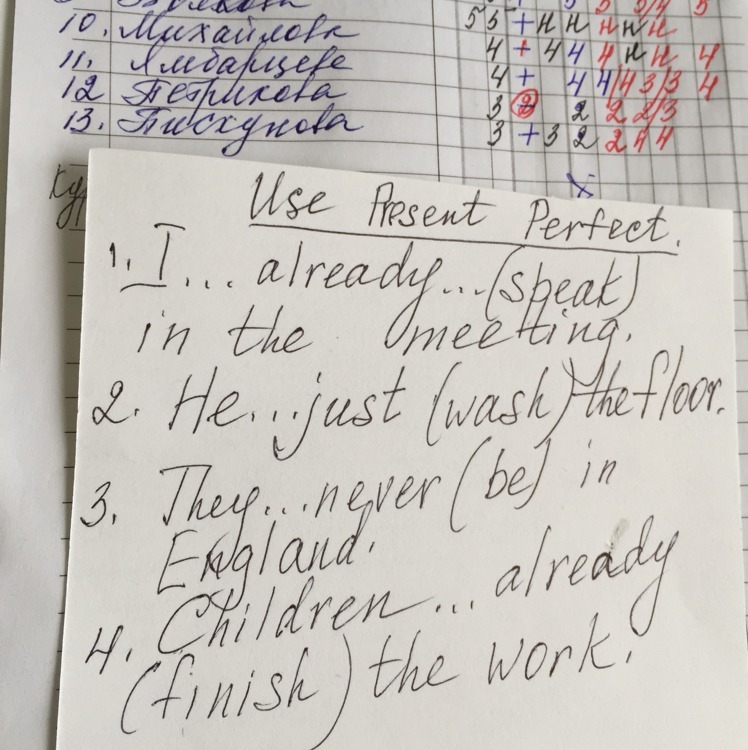 10. Михайлова 5 5 + н н н н н
11. Ямбарцева 4 + 4 4 4 н н 4
12 Петрикова 4 + 4 4/4 3/3 4
13. Пискунова 3 2 2 2 2/3
3 + 3 2 2 4 4
Use Present Perfect.
1. I... already...(speak)
in the meeting.
2. He...just (wash) the floor.
3. They...never (be) in
England.
4. Children... already
(finish) the work.